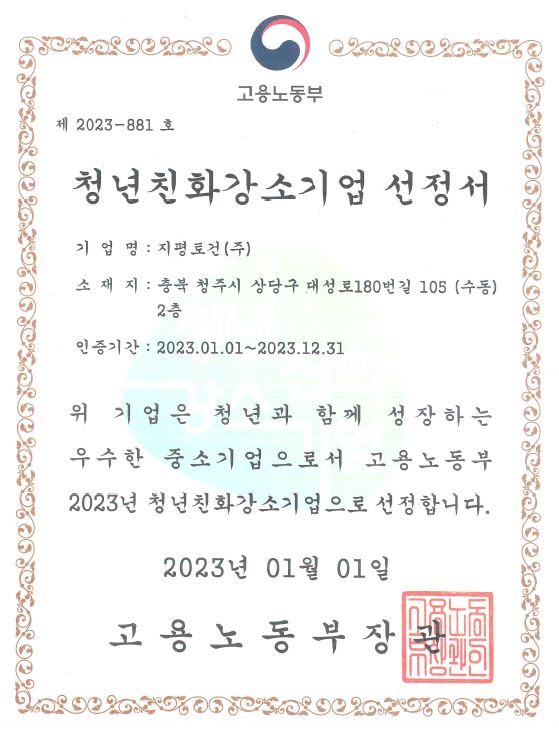 고용노동부
제 2023-881 호
청년친화강소기업 선정서
기 업 명 : 지평토건(주)
소 재 지 : 충북 청주시 상당구 대성로180번길 105 (수동)
2층
인증기간 : 2023.01.01~2023.12.31
위 기업은 청년과 함께 성장하는
우수한 중소기업으로서 고용노동부
2023년 청년친화강소기업으로 선정합니다.
2023년 01월 01일
고용노동부장관